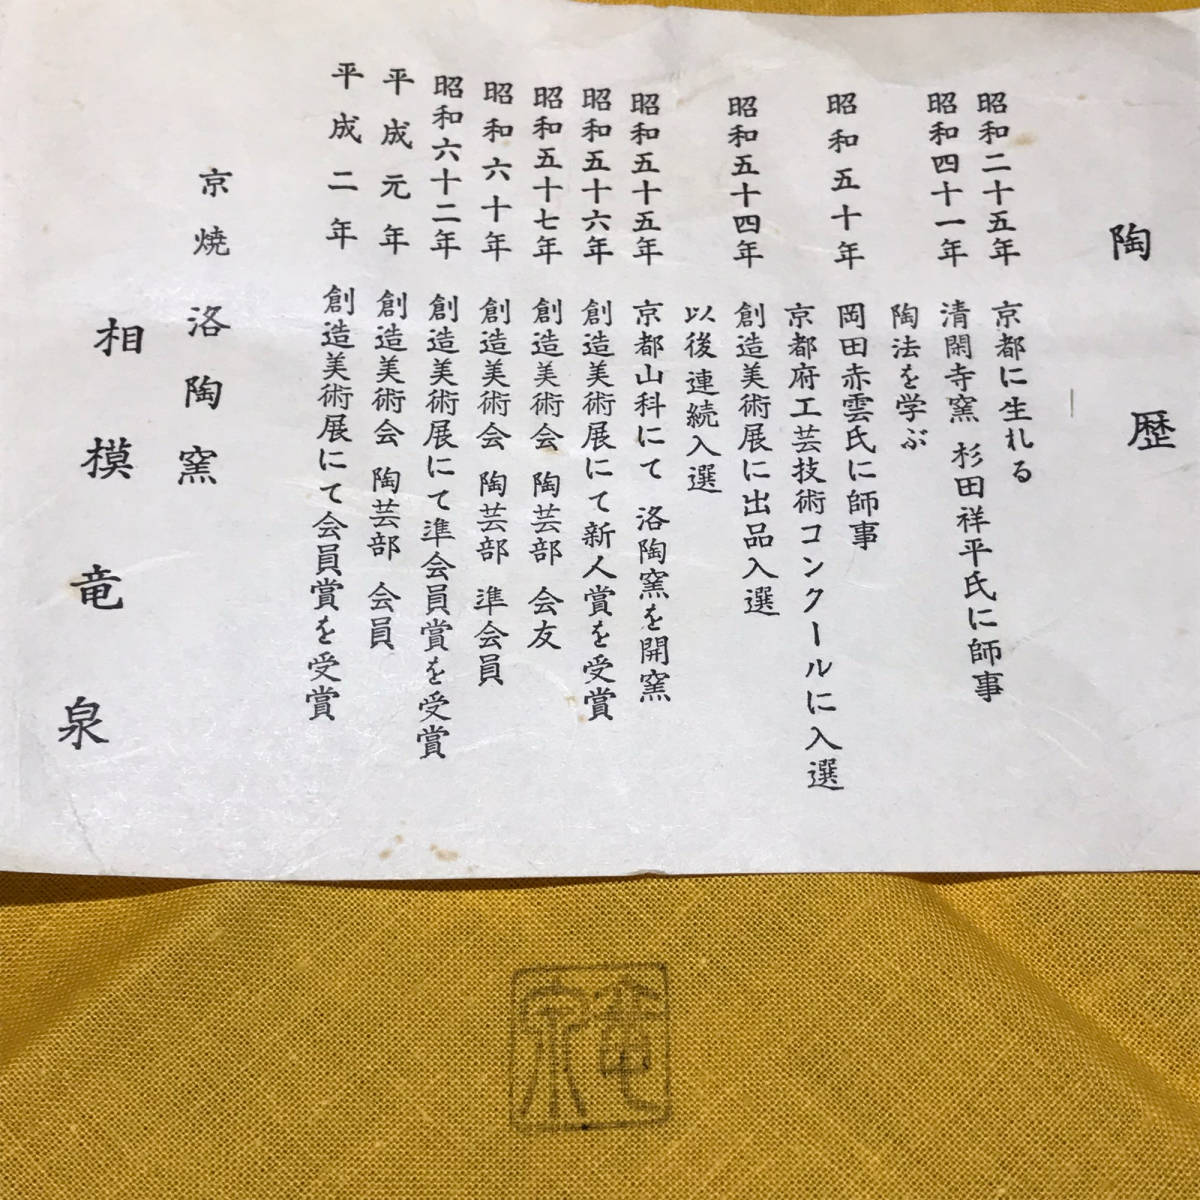 陶歴
昭和二十五年 京都に生れる
昭和四十一年 清閑寺窯 杉田祥平氏に師事
陶法を学ぶ
昭和五十年 岡田赤雲氏に師事
京都府工芸技術コンクールに入選
昭和五十四年 創造美術展に出品入選
以後連続入選
昭和五十五年 京都山科にて 洛陶窯を開窯
昭和五十六年 創造美術展にて新人賞を受賞
昭和五十七年 創造美術会 陶芸部 会友
昭和六十年 創造美術会 陶芸部 準会員
昭和六十二年 創造美術展にて準会員賞を受賞
平成元年 創造美術会 陶芸部 会員
平成二年 創造美術展にて会員賞を受賞
京焼 洛陶窯
相模竜泉
竜泉